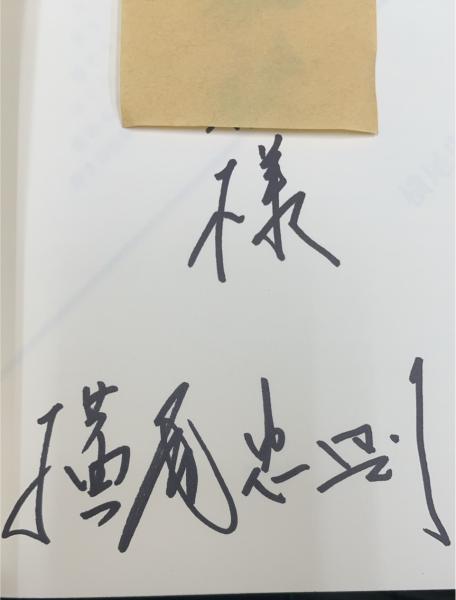 様
横尾忠則